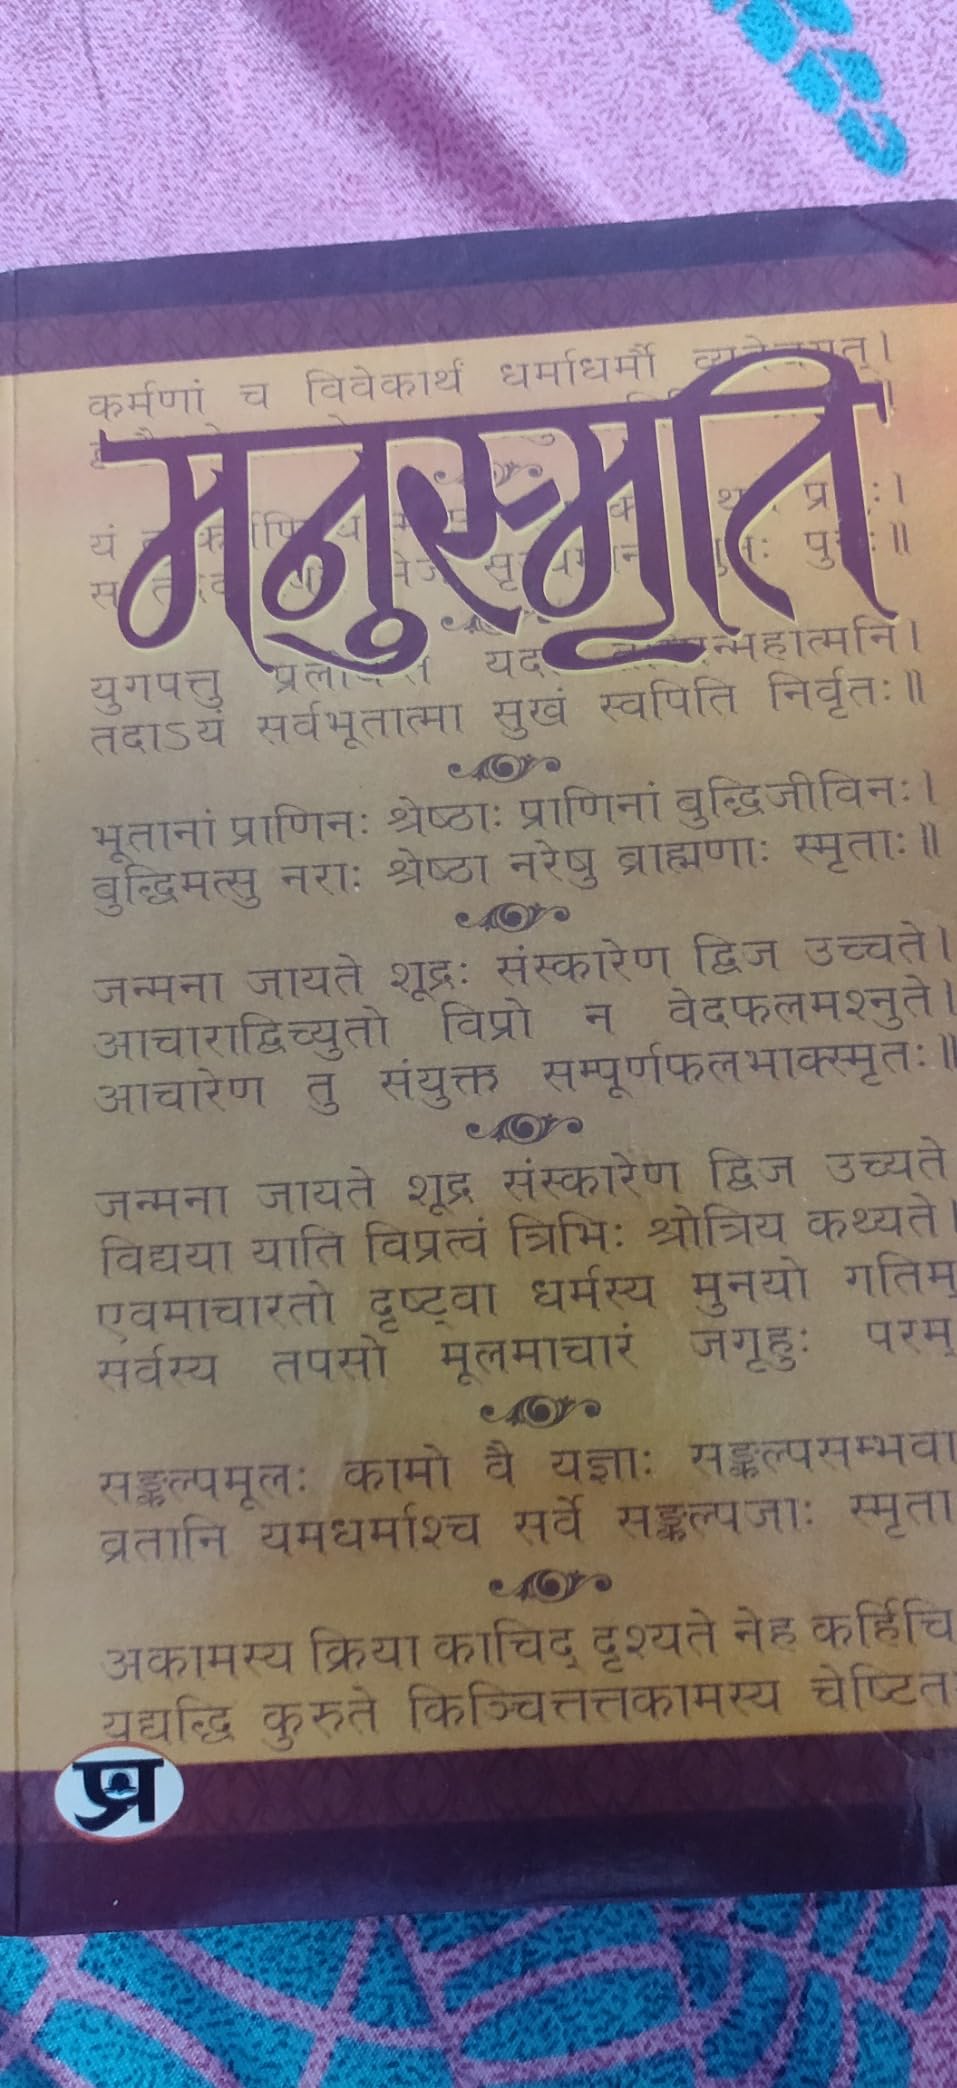 कर्मणां च विवेकार्थं धर्माधर्मौ
मनुस्मृति
यं
युगपत्तु न्महात्मनि।
तदाऽयं सर्वभूतात्मा सुखं स्वपिति निर्वृतः॥
भूतानां प्राणिनः श्रेष्ठाः प्राणिनां बुद्धिजीविनः।
बुद्धिमत्सु नराः श्रेष्ठा नरेषु ब्राह्मणाः स्मृताः॥
जन्मना जायते शूद्रः संस्कारेण द्विज उच्चते।
आचाराद्विच्युतो विप्रो न वेदफलमश्नुते।
आचारेण तु संयुक्त सम्पूर्णफलभाक्स्मृतः॥
जन्मना जायते शूद्र संस्कारेण द्विज उच्यते
विद्यया याति विप्रत्वं त्रिभिः श्रोत्रिय कथ्यते।
एवमाचारतो दृष्ट्वा धर्मस्य मुनयो गतिम्
सर्वस्य तपसो मूलमाचारं जगृहुः परम्
सङ्कल्पमूलः कामो वै यज्ञाः सङ्कल्पसम्भवा
व्रतानि यमधर्माश्च सर्वे सङ्कल्पजाः स्मृता
अकामस्य क्रिया काचिद् दृश्यते नेह कर्हिचि
यद्यद्धि कुरुते किञ्चित्तत्तकामस्य चेष्टित
प्र